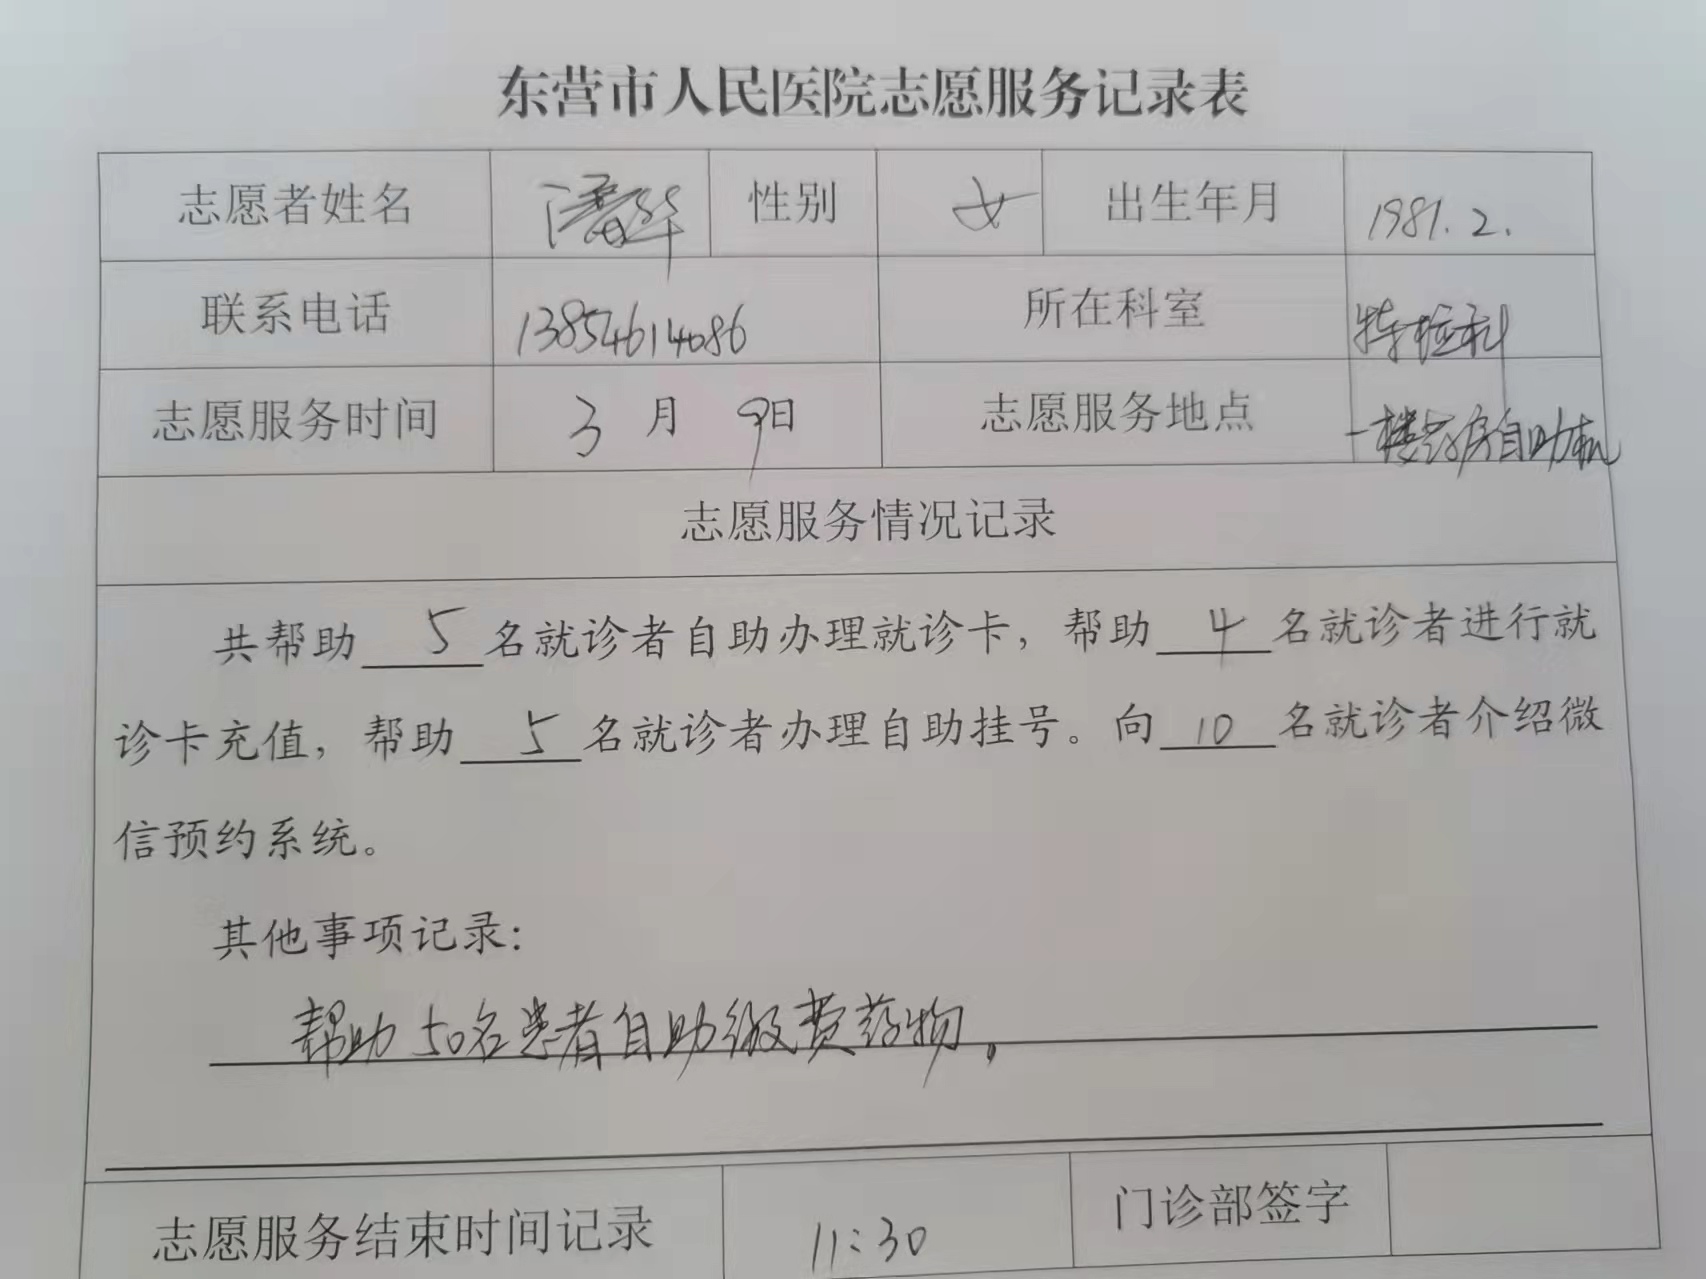 东营市人民医院志愿服务记录表
志愿者姓名 性别 女 出生年月 1981.2.
联系电话 13854614086 所在科室 特检科
志愿服务时间 3月9日 志愿服务地点 一楼药房自助机
志愿服务情况记录
共帮助5名就诊者自助办理就诊卡，帮助4名就诊者进行就
诊卡充值，帮助5名就诊者办理自助挂号。向10名就诊者介绍微
信预约系统。
其他事项记录：
帮助50名患者自助缴费药物，
志愿服务结束时间记录 11:30 门诊部签字